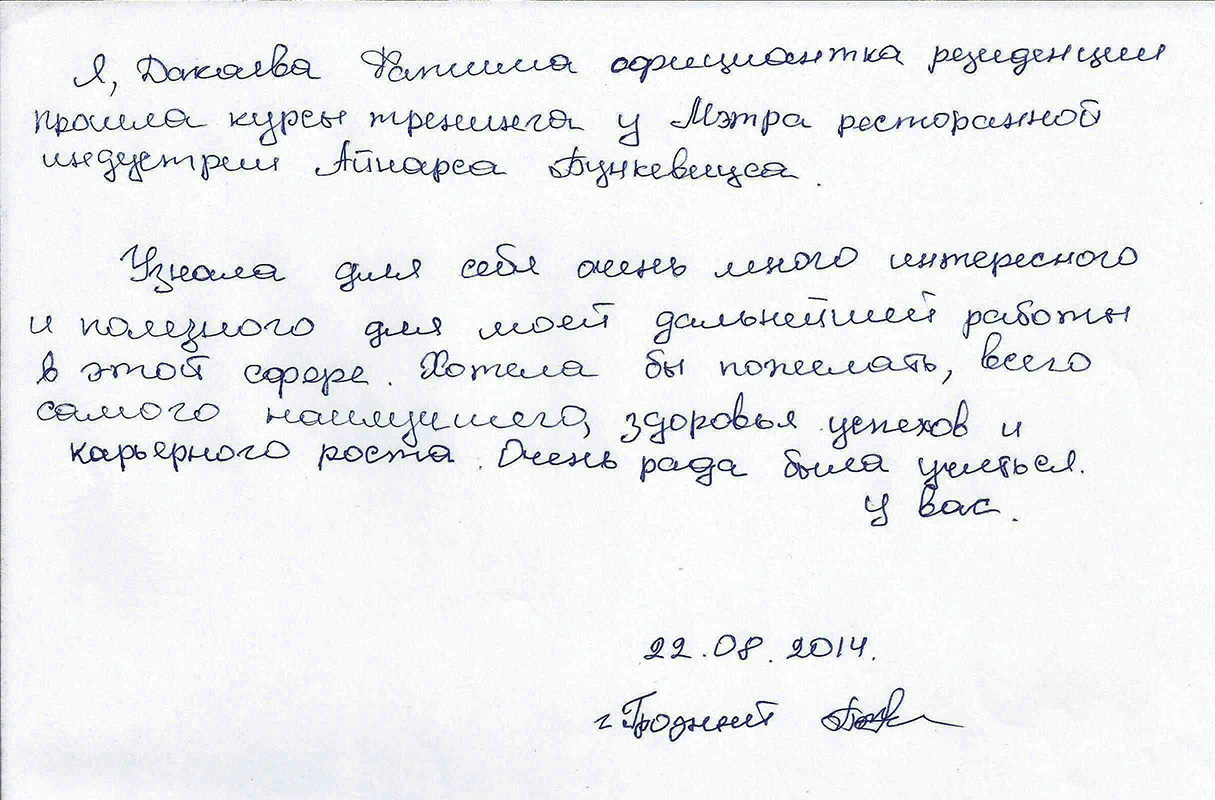 Я, Дакаева Фатима официантка резиденции
прошла курсы тренинга у Мэтра ресторанной
индустрии Айнарса Бункевицса.
Узнала для себя очень много интересного
и полезного для моей дальнейшей работы
в этой сфере. Хотела бы пожелать, всего
самого наилучшего, здоровья успехов и
карьерного роста. Очень рада была учиться.
У вас.
22.08.2014.
г Грозный